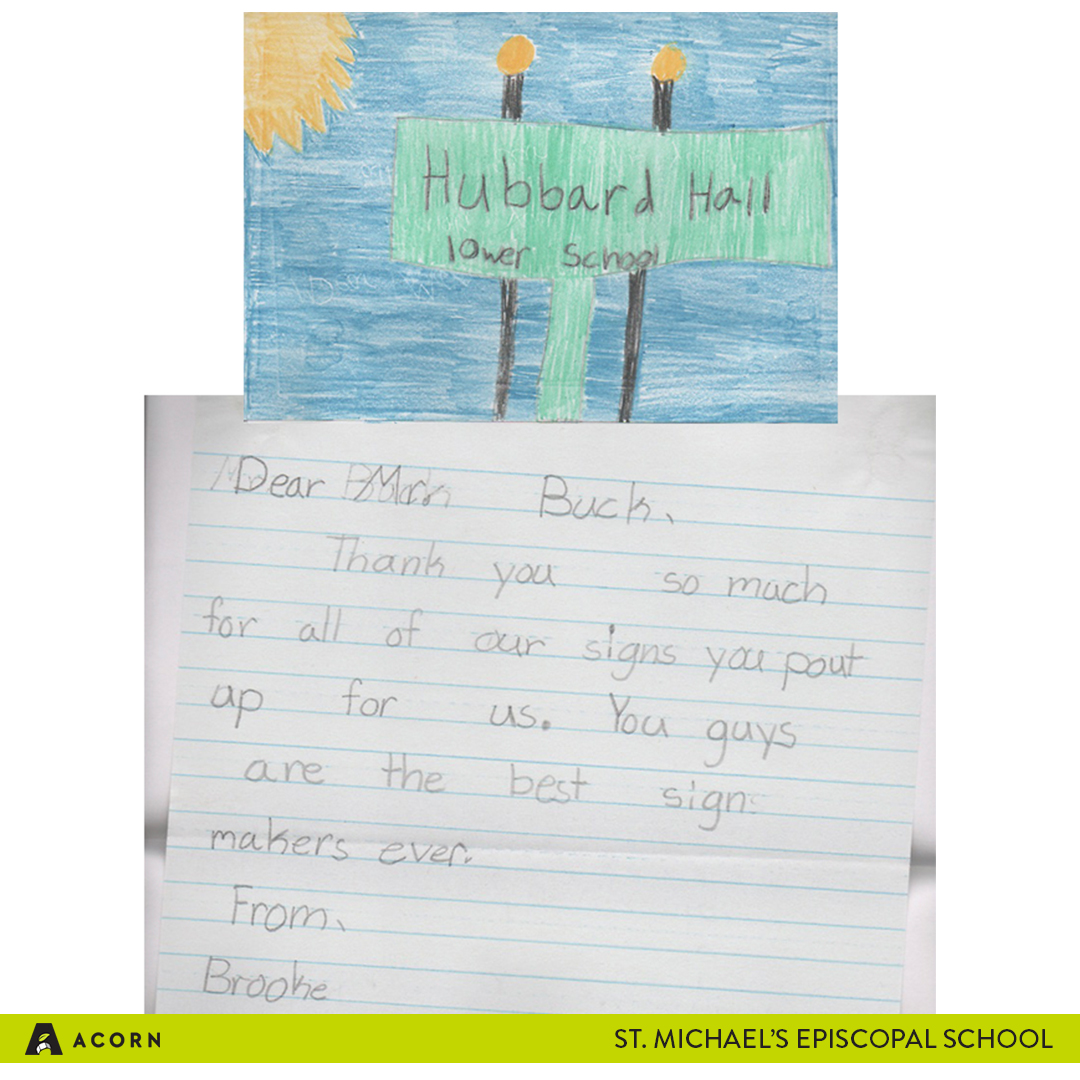 Hubbard Hall
lower School
Dear Mark Buck,
Thank you so much
for all of our signs you pout
up for us. You guys
are the best sign
makers ever.
From,
Brooke
ACORN
ST. MICHAEL'S EPISCOPAL SCHOOL